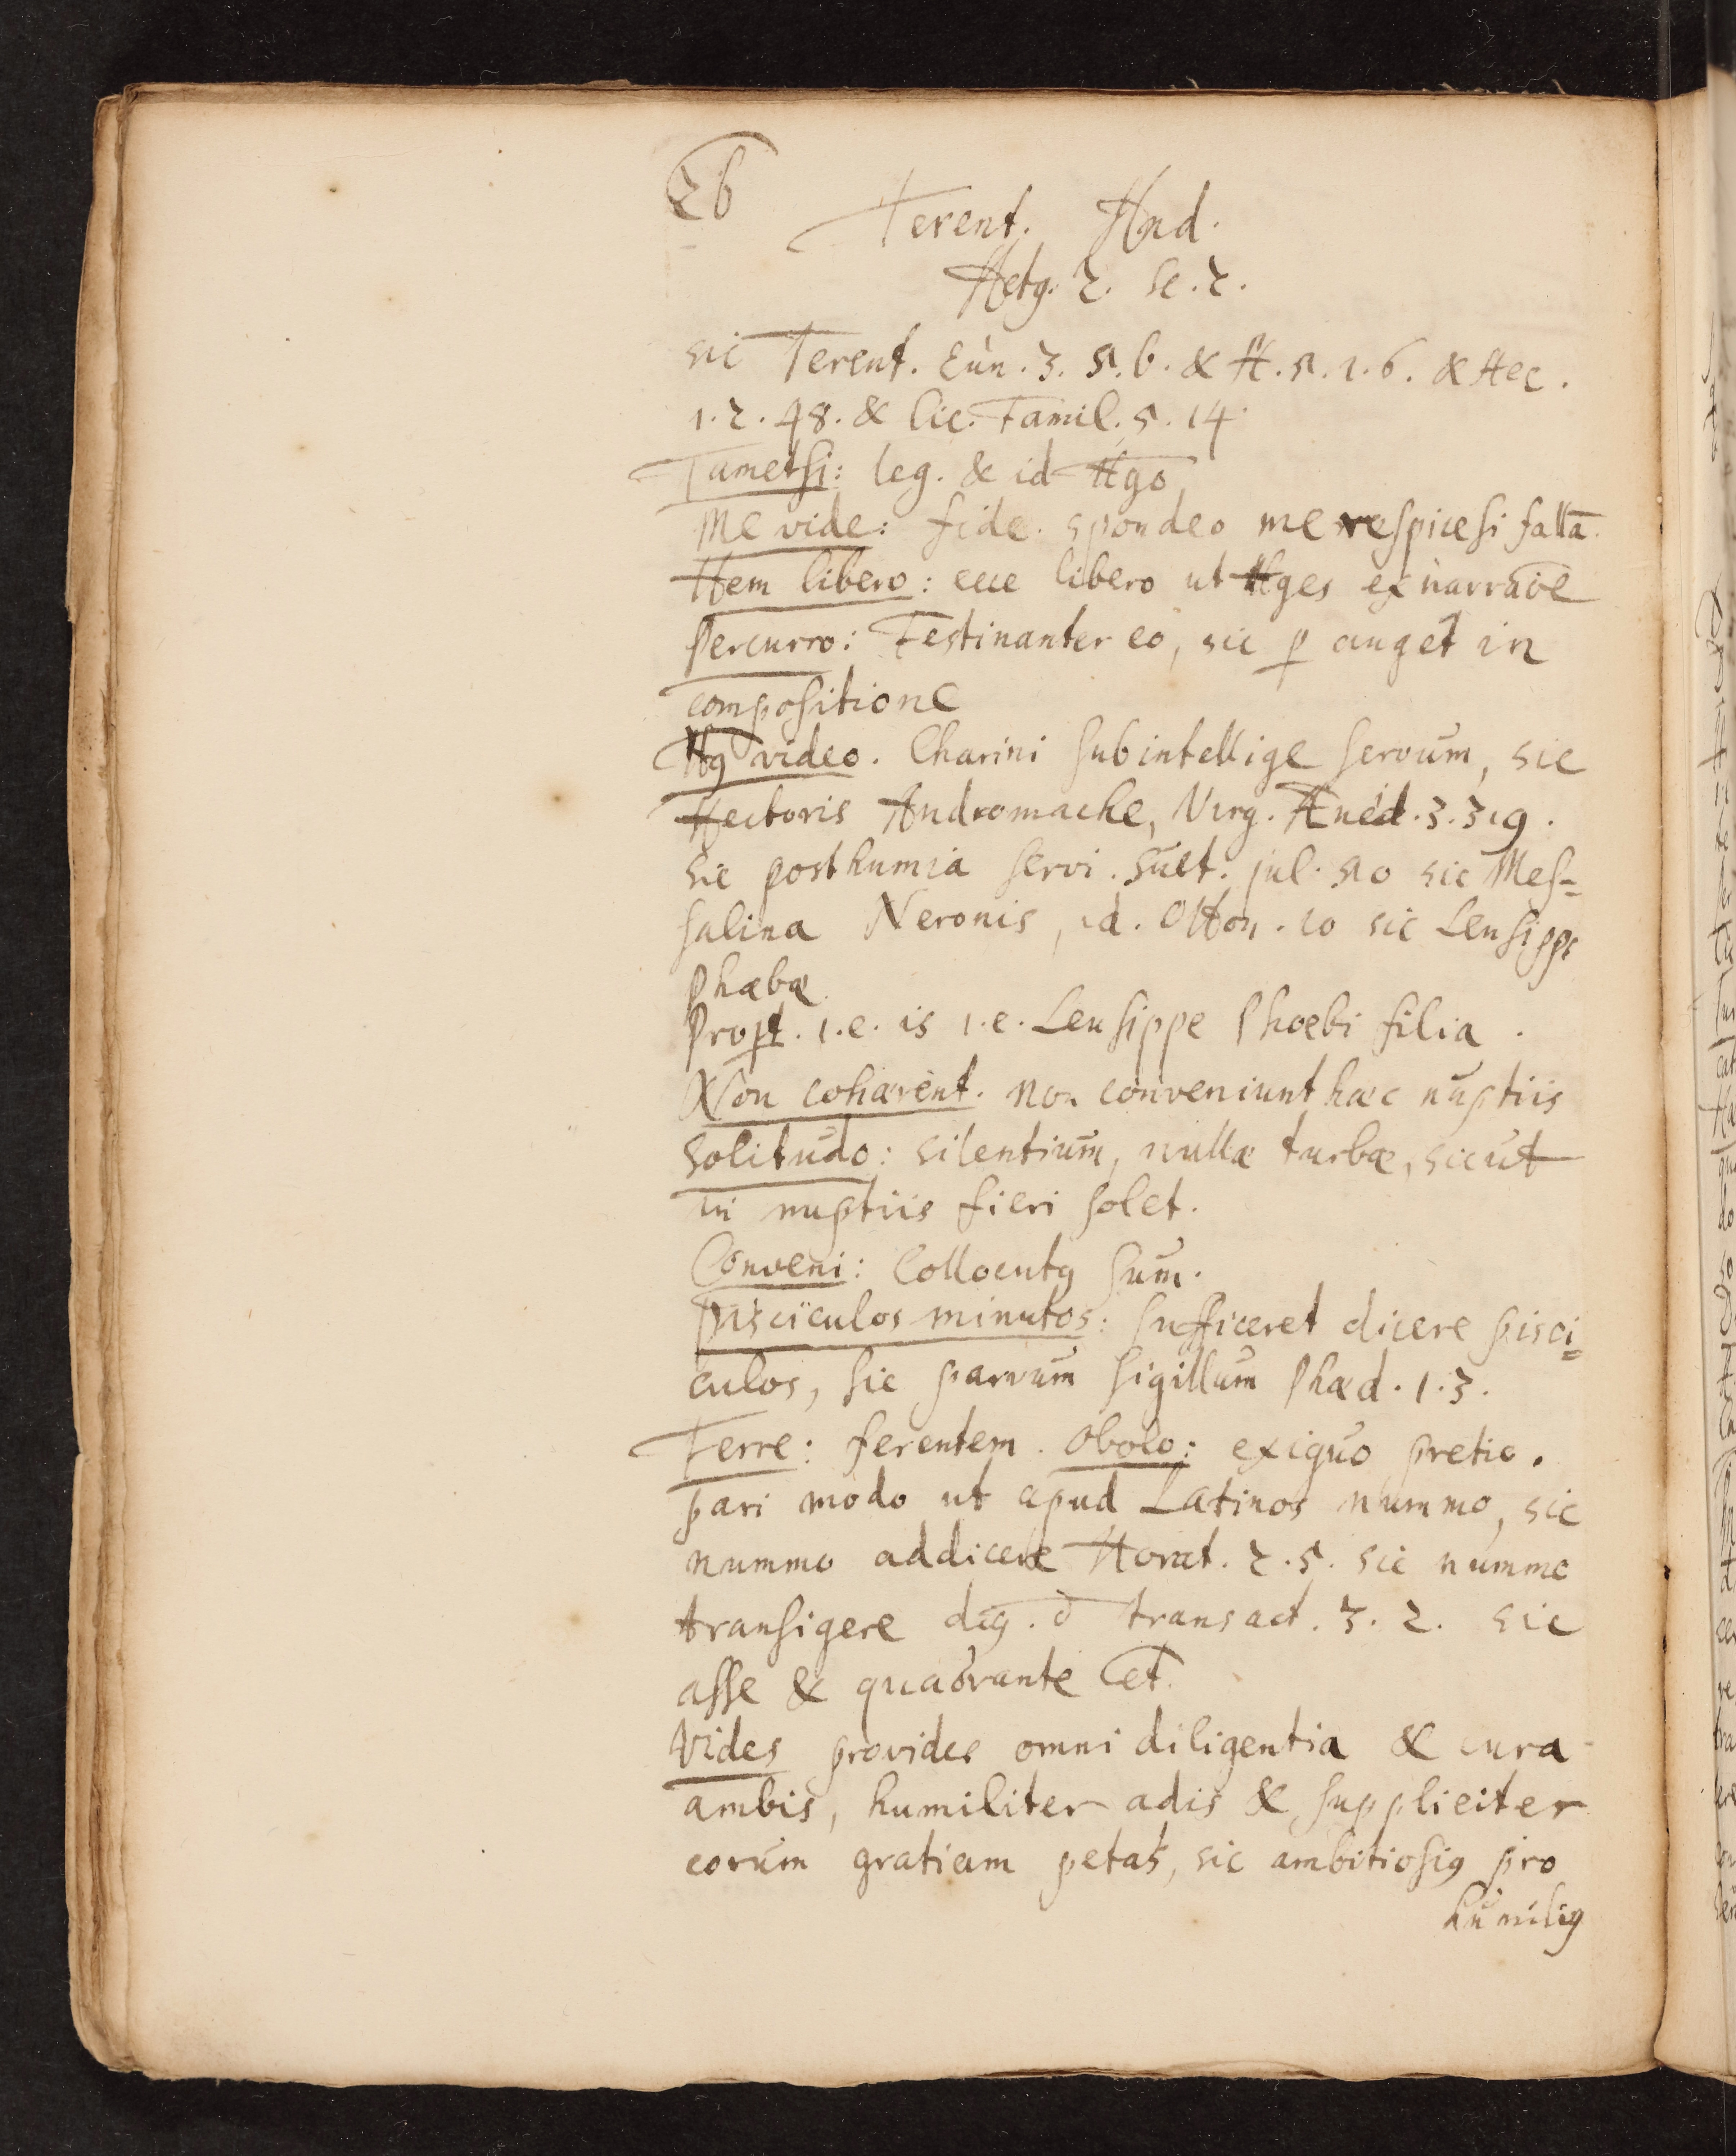 26
Terent. And.
Actꝯ. 2. Sc. 2.
sic Terent. Eun. 3. 5. 6. & H. 5. 1. 6. & Hec.
1. 2. 48. & Cic. Famil. 5. 14.
Tametsi: leg. & id Ago
Me vide: fide. spondeo me respice si fallā.
Hem libero: ecce libero ut Ages ex narraōe
Percurro: Festinanter eo, sic ꝑ auget in
compositione
Hꝯ video. Charini subintellige servum, sic
Hectoris Andromache, Virg. Æneid. 3. 319.
sic posthumia servi. Suet. jul. 50 sic Mes=
salina Neronis, id. Otton. 10 sic Leusippe
Phæbæ
Propt. i.e. is i.e. Leusippe Phoebi filia.
Non cohærent. non conveniunt hæc nuptiis
solitudo: silentium, nullæ turbæ, sicut
in nuptiis fieri solet.
Conveni: Collocutꝯ sum.
pisciculos minutos: sufficeret dicere pisci=
culos, sic parvum sigillum Phæd. 1. 3.
Ferre: ferentem. obolo: exiguo pretio.
pari modo ut apud Latinos nummo, sic
nummo addicere Horat. 2. 5. sic nummo
transigere dig. d transact. 3. 2. sic
asse & quadrante Cet.
Vides provides omni diligentia & cura
ambis, humiliter adis & suppliciter
eorum gratiam petas, sic ambitiosiꝯ pro
humiliꝯ